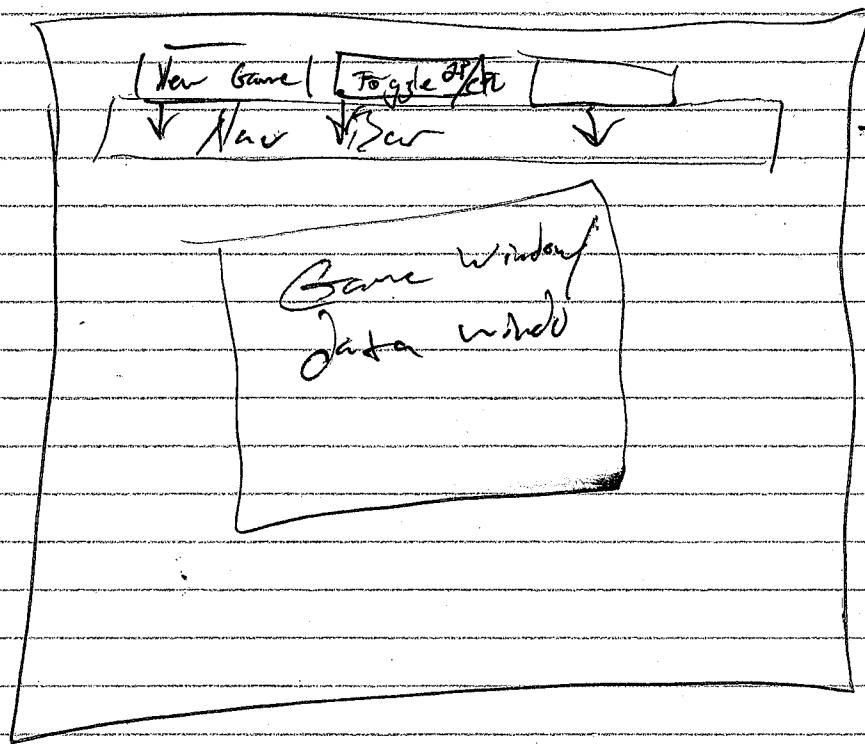 New Game Toggle 2P/CPU
Nav Bar
Game window/
data windo